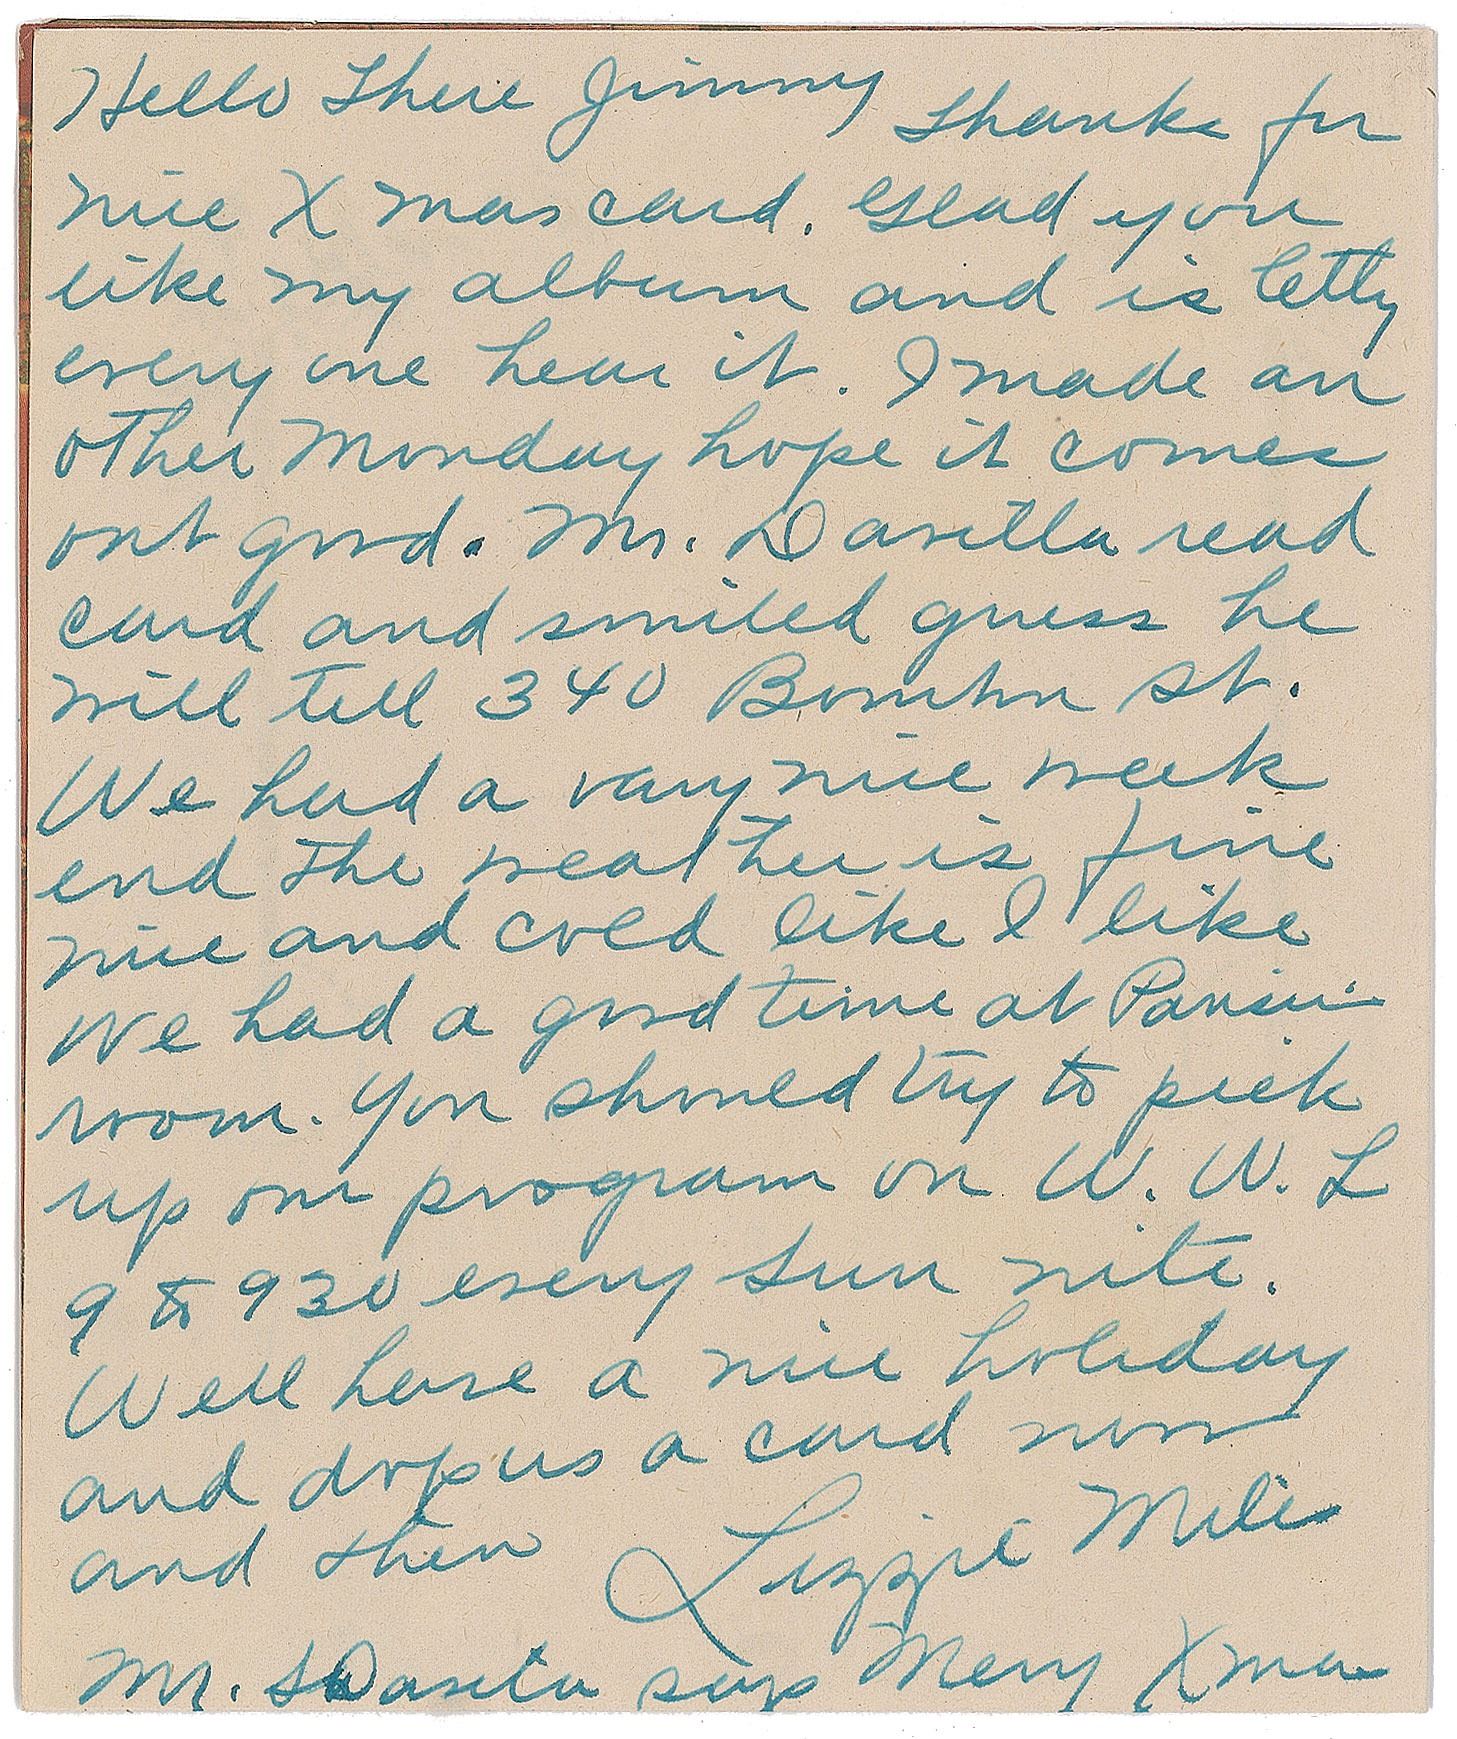 Hello There Jimmy Thanks for
nice X mas card. Glad you
like my album and is letty
every one hear it. I made an
other Monday hope it comes
out good. Mr. Davilla read
card and smiled guess he
will tell 340 Bourbon St.
We had a vary nice week
end The weather is fine
nice and cold like I like
We had a good time at Parisian
room. You should try to pick
up our program on W. W. L
9 to 930 every Sun nite.
Well have a nice holiday
and drop us a card now
and then Lizzie Miles
Mr. Davila says Mery Xmas